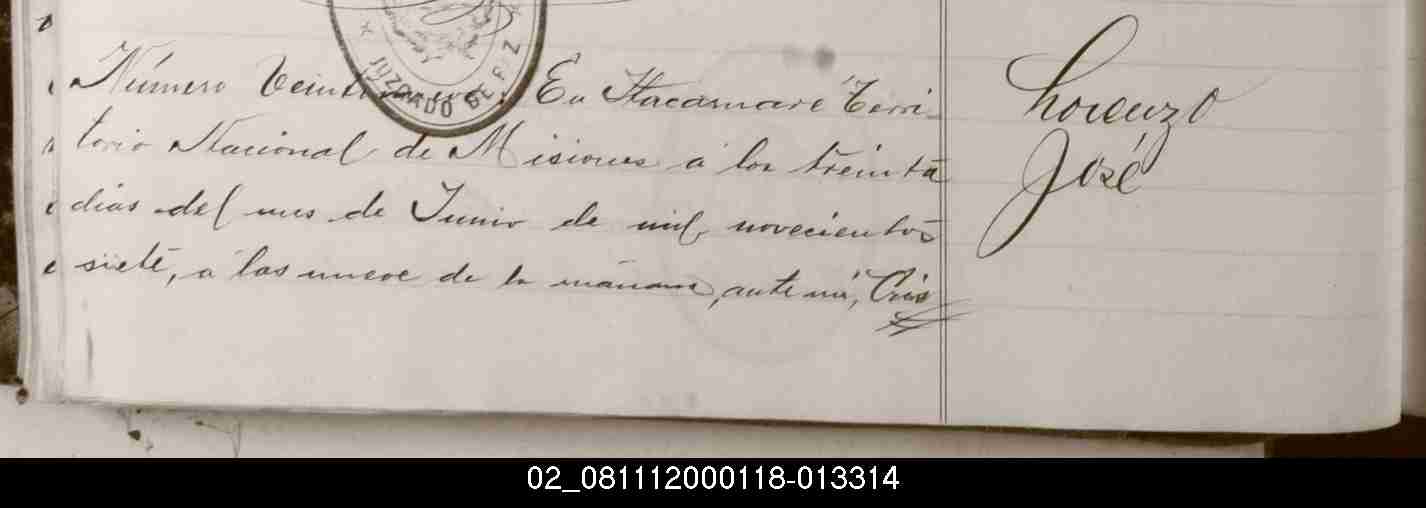 JUZGADO DE PAZ
Número En Itacaruaré Terri-
torio Nacional de Misiones á los treinta
dias del mes de Junio de mil novecientos
siete, á las nueve de la mañana, ante mi, Cris
Lorenzo
José
02_081112000118-013314